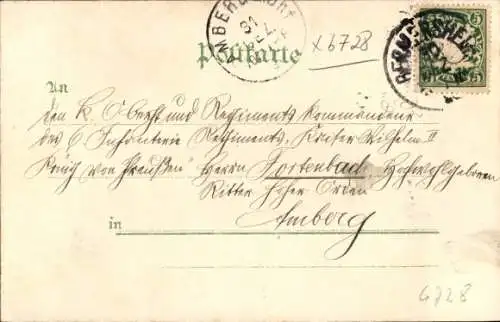 Postkarte
x 6728
5
An
den K. Oberst und Regiments Kommandeur
des 6 Infanterie Regiments, Kaiser Wilhelm II
König von Preußen" Herrn Hochwohlgeboren
Ritter hoher Orden
in Amberg
6728